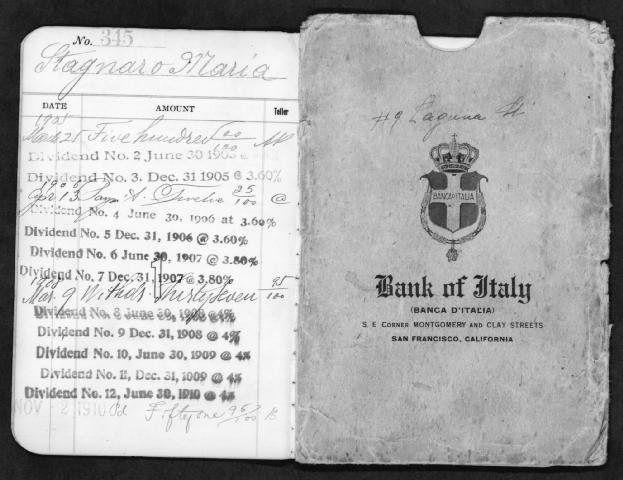 No. 345
Stagnaro Maria
DATE AMOUNT Teller
1905
March 21 Five hundred 00/100
Dividend No. 2 June 30 1905 @
Dividend No. 3. Dec. 31 1905 @ 3.60%
1906
Apr 13 Twelve 25/100 @
Dividend No. 4 June 30, 1906 at 3.60%
Dividend No. 5 Dec. 31, 1906 @ 3.60%
Dividend No. 6 June 30, 1907 @ 3.80%
Dividend No. 7 Dec. 31, 1907 @ 3.80%
1908
Mar. 9 Withdr. Thirtyseven 95/100
Dividend No. 8 June 30, 1908 @ 4%
Dividend No. 9 Dec. 31, 1908 @ 4%
Dividend No. 10, June 30, 1909 @ 4%
Dividend No. 11, Dec. 31, 1909 @ 4%
Dividend No. 12, June 30, 1910 @ 4%
NOV - 2 1910 Pd Fiftyone 95/100 B
#9 Laguna St
BANCA D'ITALIA
Bank of Italy
(BANCA D'ITALIA)
S. E. CORNER MONTGOMERY AND CLAY STREETS
SAN FRANCISCO, CALIFORNIA